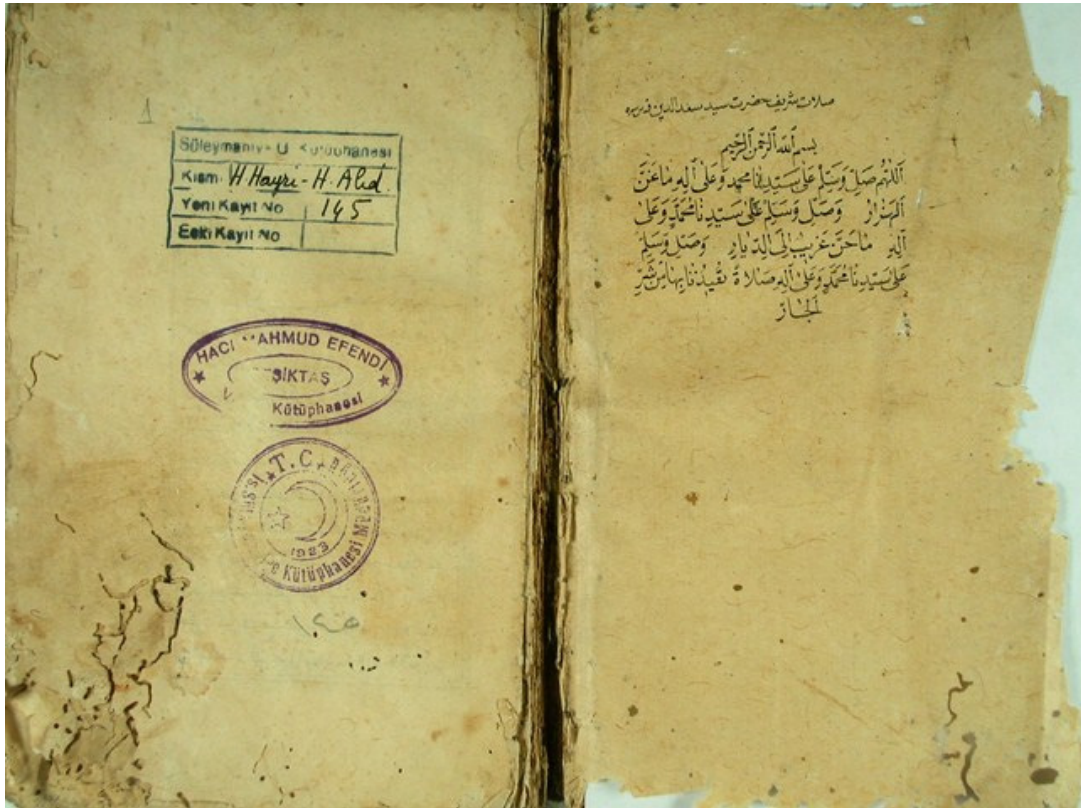 1
Süleymaniye U Kütüphanesi
Kısmı H Hayri - H. Abd.
Yeni Kayıt No 145
Eski Kayıt No
HACI MAHMUD EFENDİ
BEŞİKTAŞ
Kütüphanesi
T.C.
1983
Kütüphanesi
صلات شريف حضرت سيد سعد الدين
بسم الله الرحمن الرحيم
اللهم صل وسلم على سيدنا محمد وعلى آله ما غنى
الهزار وصل وسلم على سيدنا محمد وعلى
آله ما حن غريب الى الديار وصل وسلم
على سيدنا محمد وعلى آله صلاة تعيذنا بها من شر
الجار